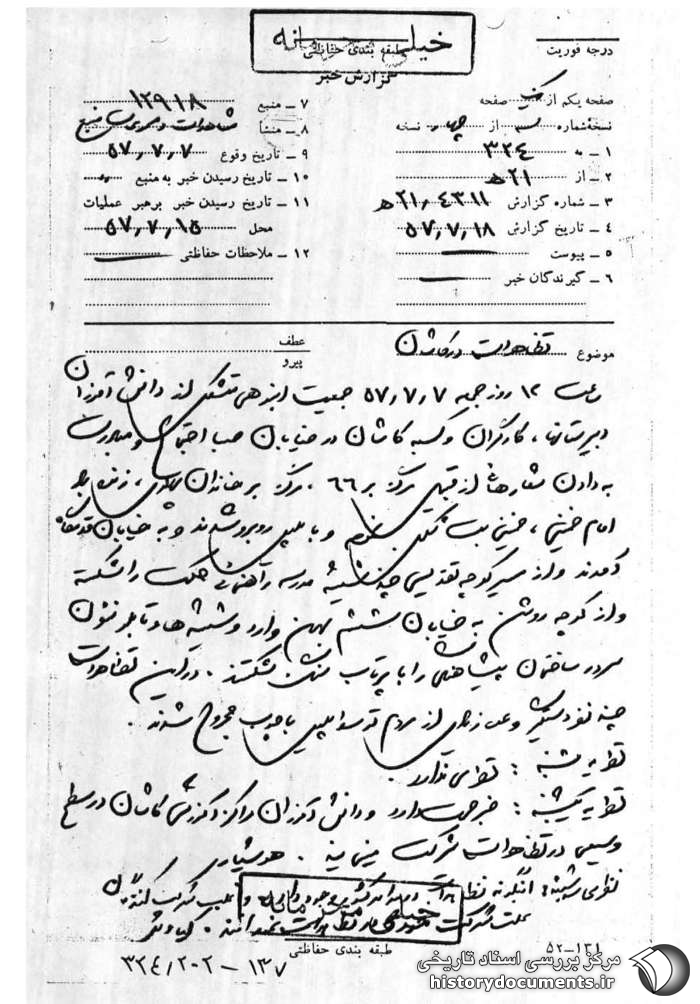 خیلی محرمانه
طبقه بندی حفاظتی
گزارش خبر
درجه فوریت
صفحه یکم از یک صفحه
نسخه شماره از چهار نسخه
۱ – به ۳۲۴
۲ – از ۲۱ ﻫ
۳ – شماره گزارش ۲۱/۴۳۱۱ ﻫ
۴ – تاریخ گزارش ۵۷/۷/۱۸
۵ – پیوست
۶ – گیرندگان خبر
۷ – منبع ۱۲۹۱۸
۸ – منشأ مشاهدات و منبع
۹ – تاریخ وقوع ۵۷/۷/۷
۱۰ – تاریخ رسیدن خبر به منبع
۱۱ – تاریخ رسیدن خبر برهبر عملیات
محل ۵۷/۷/۱۵
۱۲ – ملاحظات حفاظتی
موضوع تظاهرات در کاشان
عطف
پیرو
ساعت ۱۲ روز جمعه ۵۷/۷/۷ جمعیت انبوهی متشکل از دانش آموزان
دبیرستانها، کارگران و کسبه کاشان در خیابان صبا اجتماع و مبادرت
به دادن شعارهائی از قبیل مرگ بر ۶۶، مرگ بر خاندان پهلوی، زنده باد
امام خمینی، خمینی بت شکن و با پلیس روبرو شدند و به خیابان
آمدند و از سر کوچه چند شیشه مدرسه راهنمائی را شکسته
و از کوچه روشن به خیابان ششم بهمن وارد و شیشه ها و تابلو نئون
سردر ساختمان پیشاهنگی را با پرتاب سنگ شکستند. در این تظاهرات
چند نفر دستگیر و عده ای از مردم توسط پلیس با چوب مجروح شدند.
نظریه شنبه: نظری ندارد.
نظریه یکشنبه: خبر صحت دارد و دانش آموزان مراکز آموزشی کاشان در سطح
وسیعی در تظاهرات شرکت مینمایند. هوشیار
نظریه سه شنبه: اینگونه تظاهرات در کشور وجود و اغلب شرکت کنندگان
علت شرکت خود را در تظاهرات نمیدانند. کیاوش
خیلی محرمانه
طبقه بندی حفاظتی
۵۲–۱۲۱
۳۲۴/۲۰۲ – ۱۳۷
مرکز بررسی اسناد تاریخی
historydocuments.ir